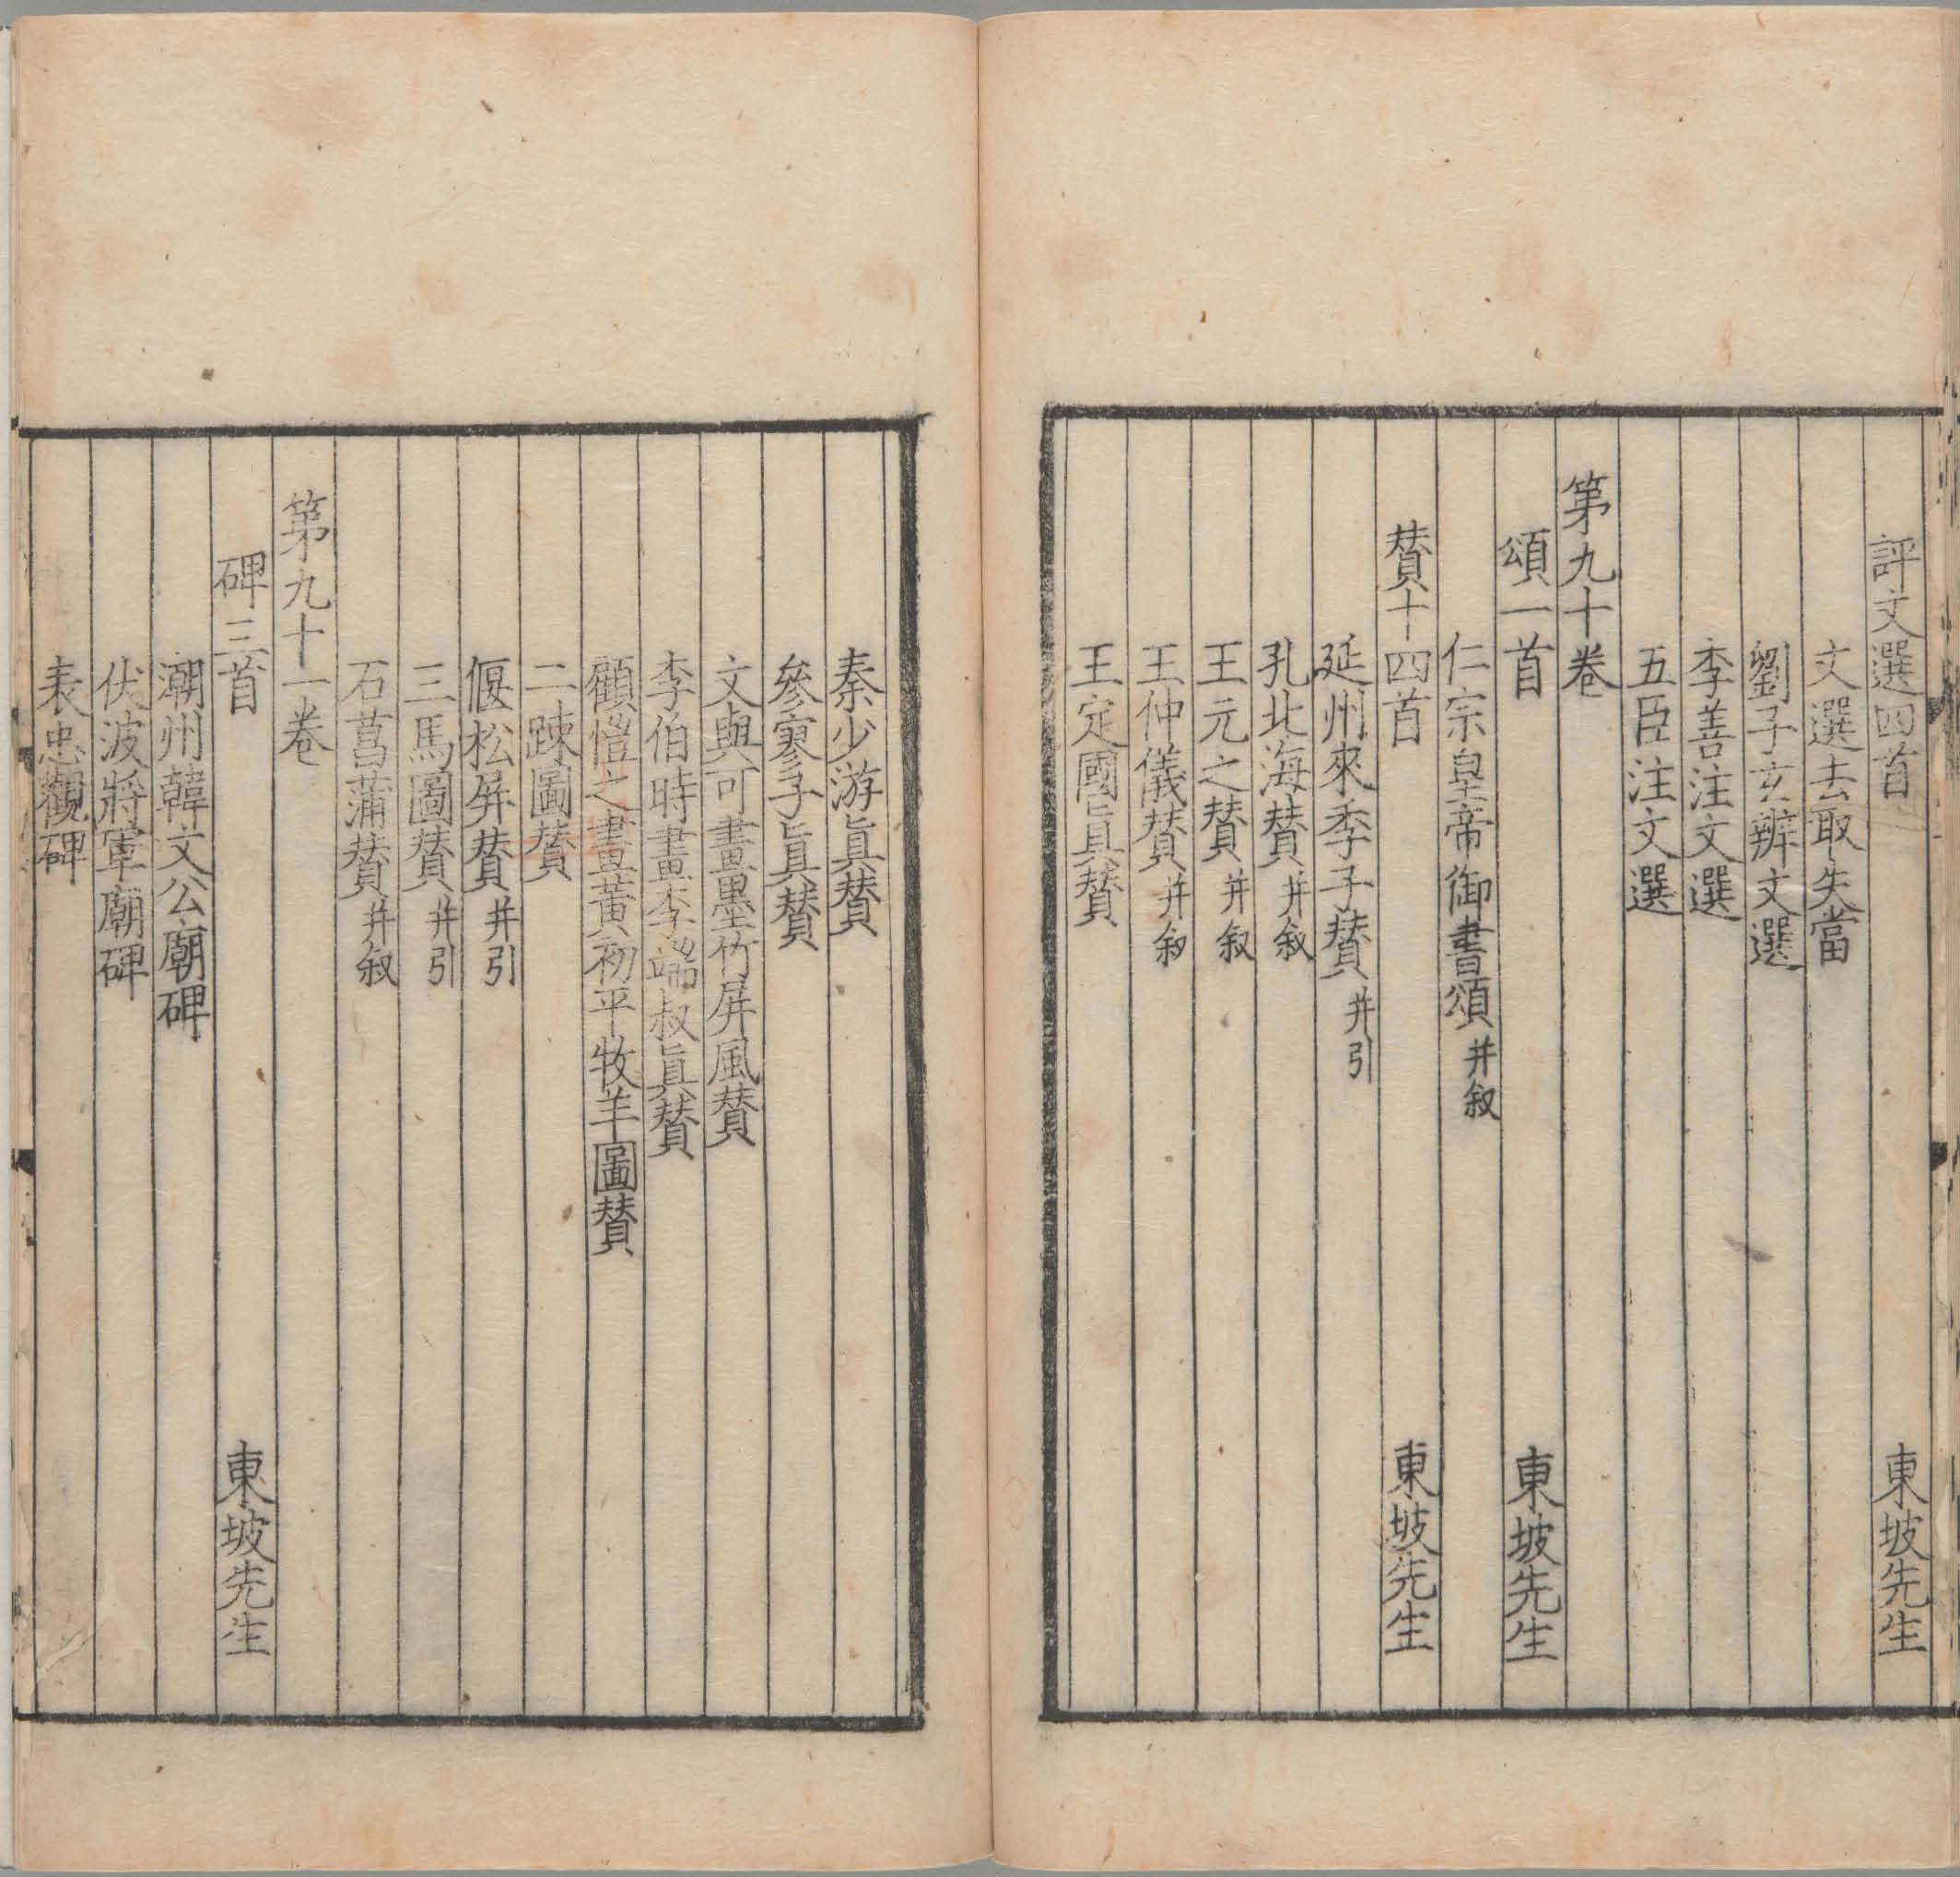 評文選四首 東坡先生
文選去取失當
劉子玄辨文選
李善注文選
五臣注文選
第九十卷
頌一首 東坡先生
仁宗皇帝御書頌并叙
賛十四首 東坡先生
延州來季子賛并引
孔北海賛并叙
王元之賛并叙
王仲儀賛并叙
王定國真賛
秦少游真賛
參寥子真賛
文與可畫墨竹屏風賛
李伯時畫李端叔真賛
顧愷之畫黃初平牧羊圖賛
二踈圖賛
偃松屏賛并引
三馬圖賛并引
石菖蒲賛并叙
第九十一卷
碑三首 東坡先生
潮州韓文公廟碑
伏波將軍廟碑
表忠觀碑